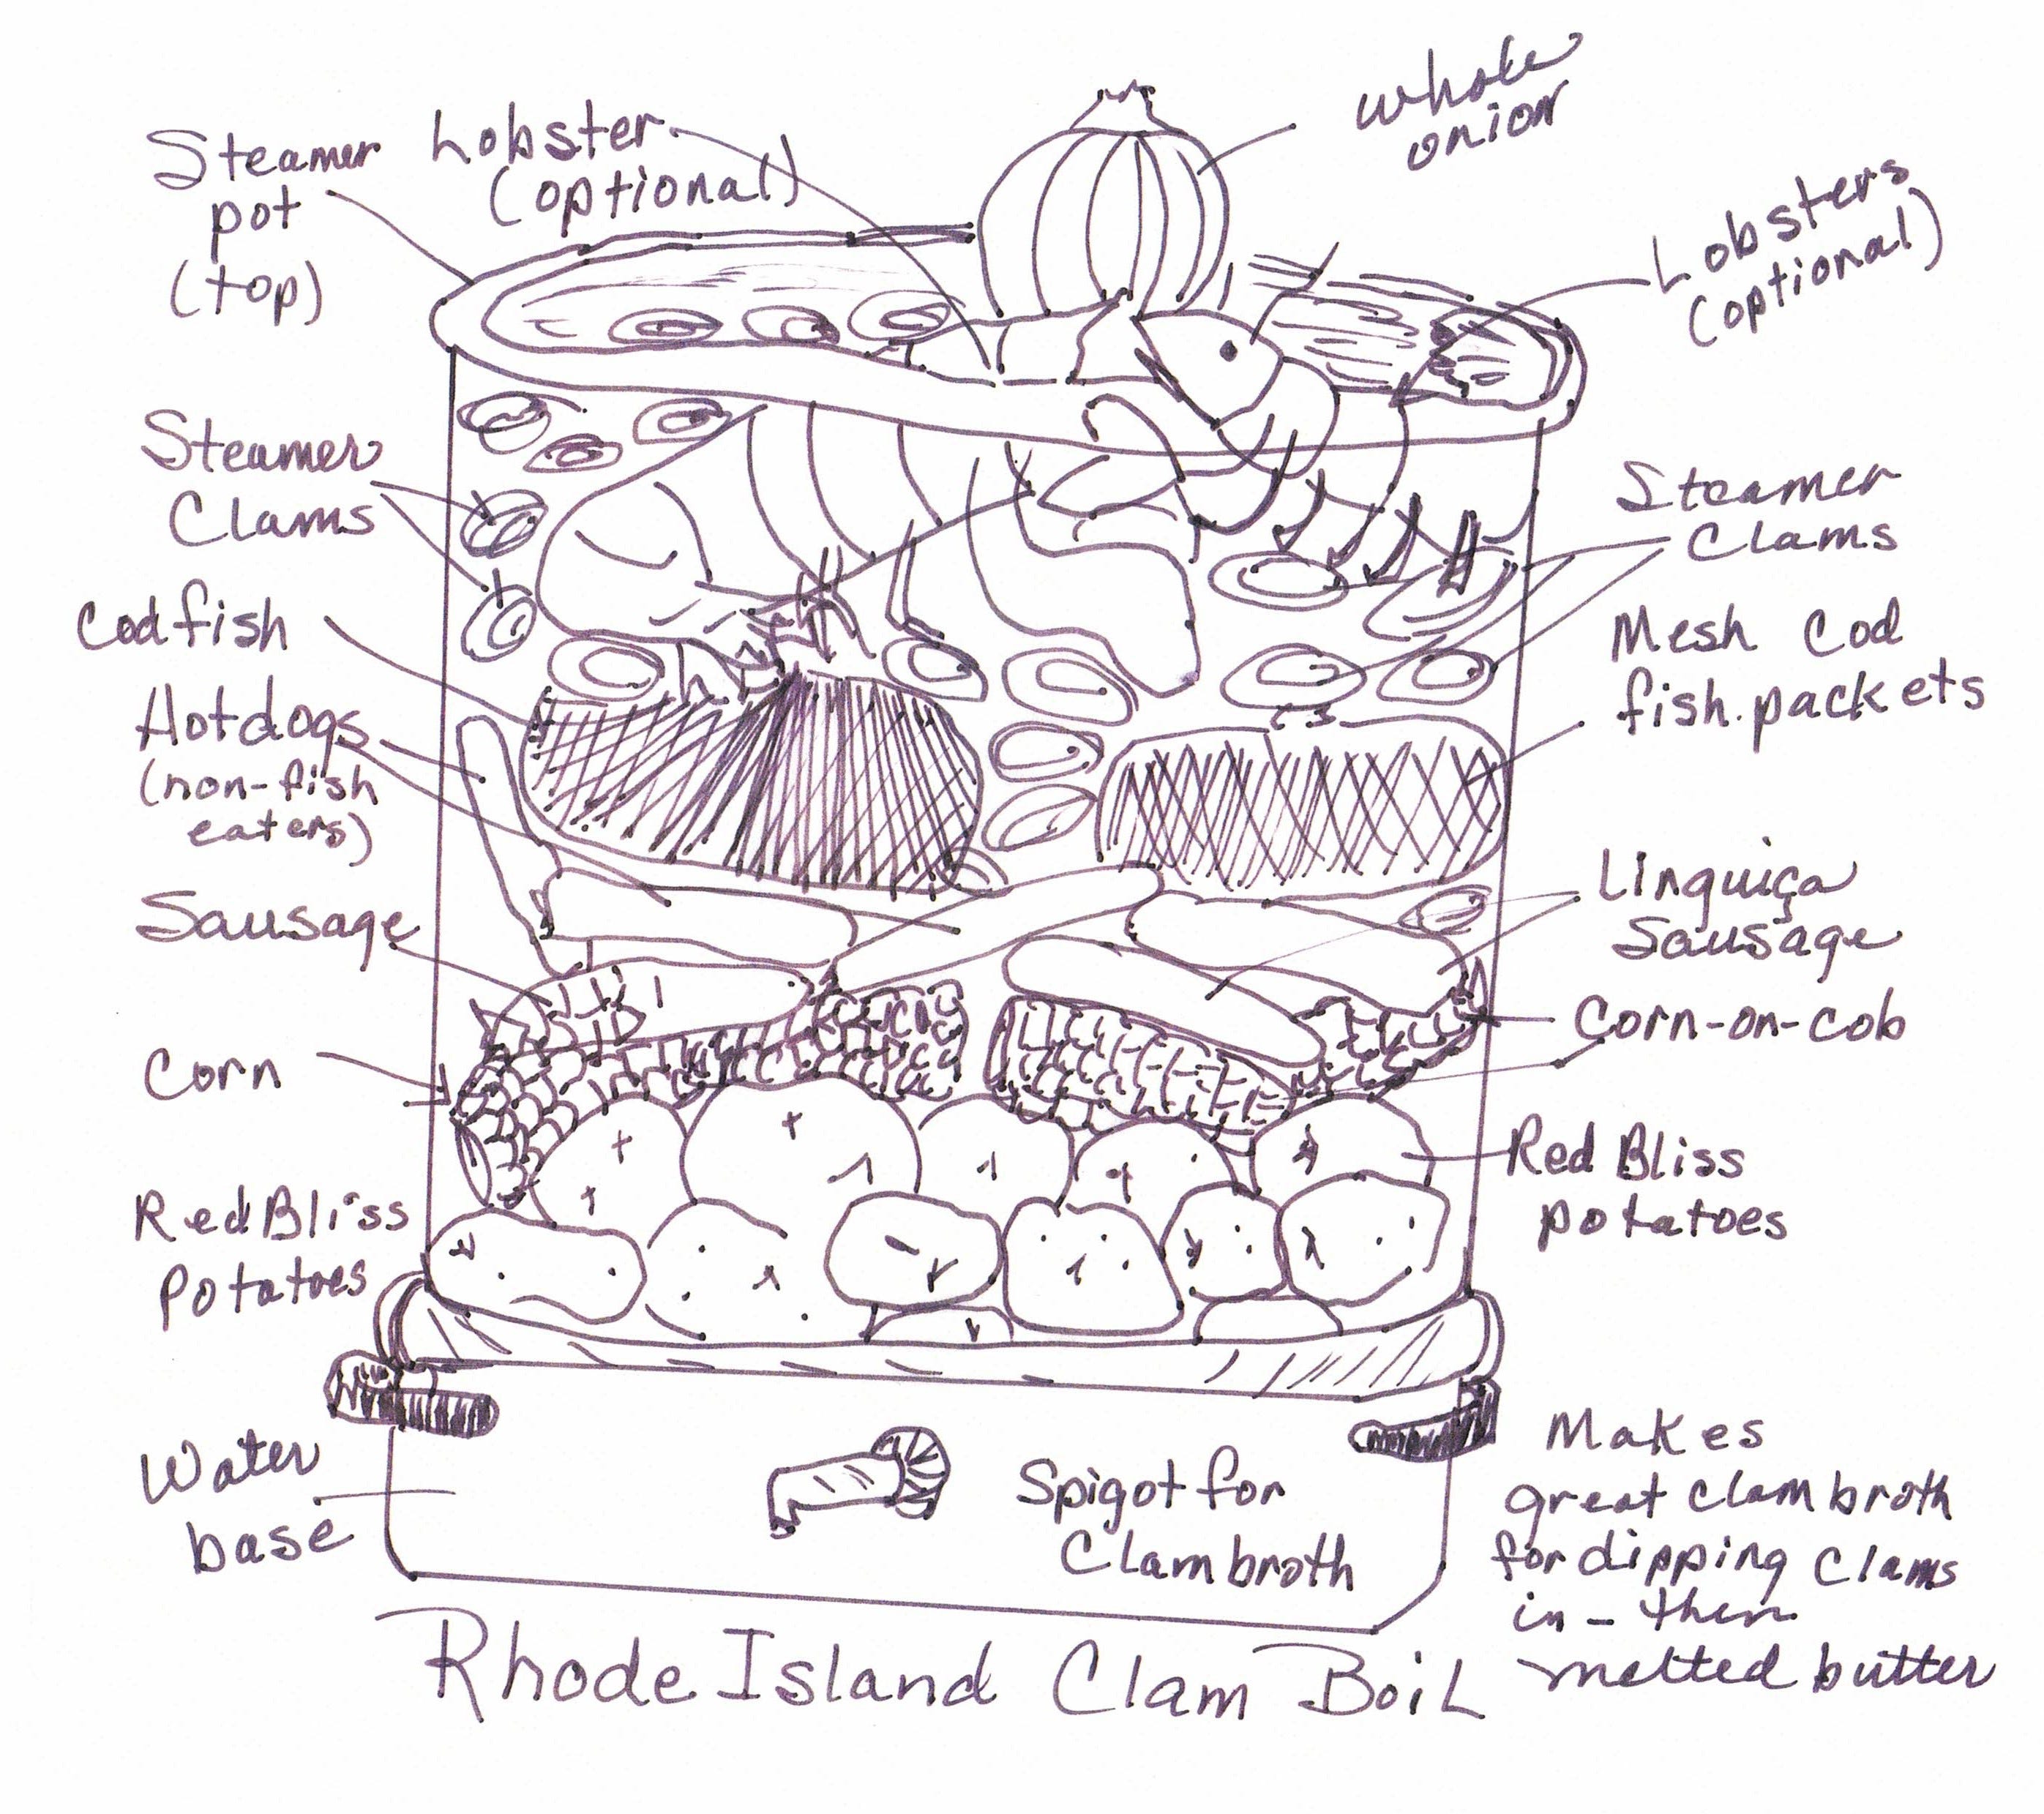 whole
onion
Steamer
pot
(top)
Lobster
(optional)
Lobsters
(optional)
Steamer
Clams
Steamer
Clams
Codfish
Mesh Cod
fish packets
Hotdogs
(non-fish
eaters)
Sausage
Linguiça
Sausage
Corn
Corn-on-cob
Red Bliss
Potatoes
Red Bliss
potatoes
Water
base
Spigot for
Clam broth
Makes
great clam broth
for dipping clams
in - then
melted butter
Rhode Island Clam Boil